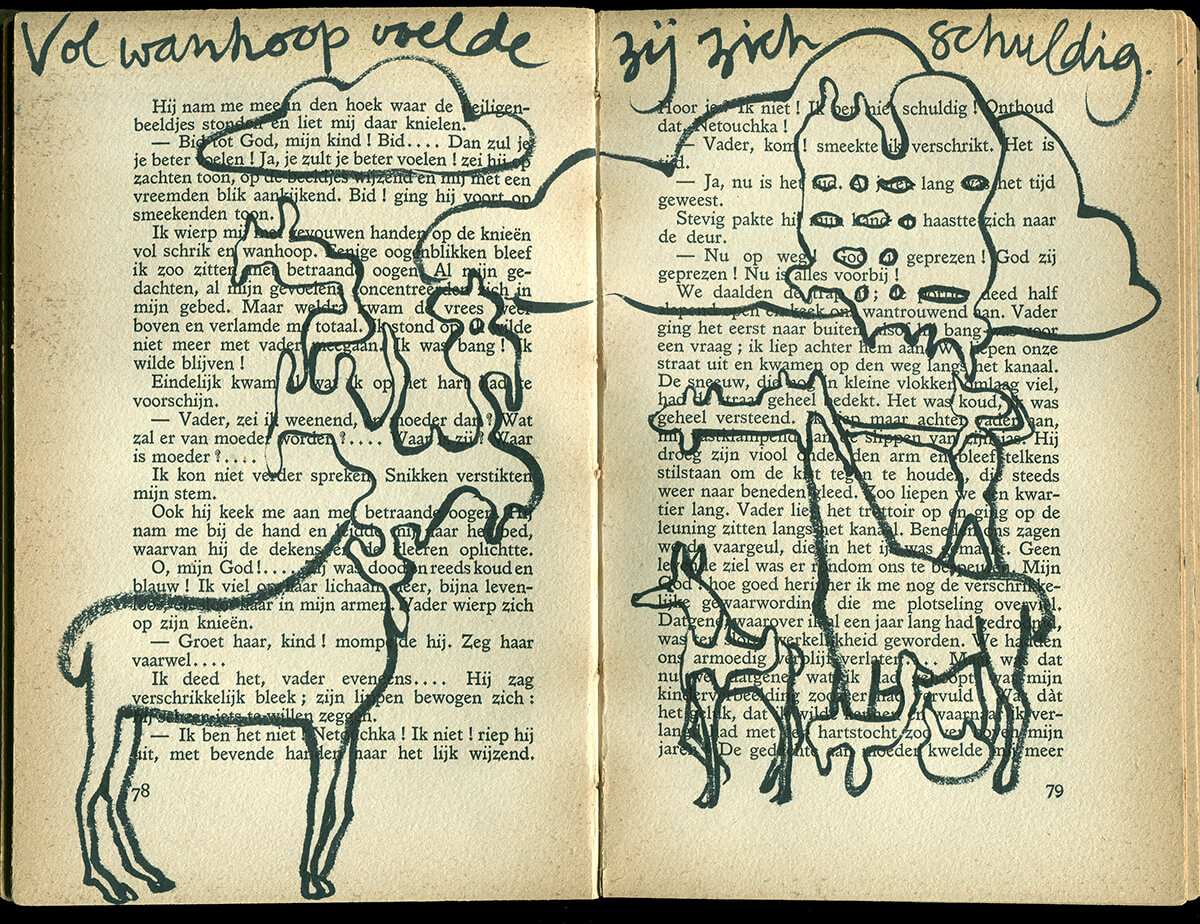 Vol wanhoop voelde zij zich schuldig.
Hij nam me mee in den hoek waar de heiligen-
beeldjes stonden en liet mij daar knielen.
— Bid tot God, mijn kind ! Bid.... Dan zul je
je beter voelen ! Ja, je zult je beter voelen ! zei hij op
zachten toon, op de beeldjes wijzend en mij met een
vreemden blik aankijkend. Bid ! ging hij voort op
smeekenden toon.
Ik wierp mij met gevouwen handen op de knieën
vol schrik en wanhoop. Eenige oogenblikken bleef
ik zoo zitten met betraande oogen. Al mijn ge-
dachten, al mijn gevoelens concentreerden zich in
mijn gebed. Maar weldra kwam de vrees weer
boven en verlamde mij totaal. Ik stond op. Ik wilde
niet meer met vader meegaan. Ik was bang ! Ik
wilde blijven !
Eindelijk kwam wat ik op het hart had te
voorschijn.
— Vader, zei ik weenend, en moeder dan ? Wat
zal er van moeder worden ?.... Waar is zij ? Waar
is moeder ?....
Ik kon niet verder spreken. Snikken verstikten
mijn stem.
Ook hij keek me aan met betraande oogen. Hij
nam me bij de hand en leidde mij naar het bed,
waarvan hij de dekens en de kleeren oplichtte.
O, mijn God !.... Zij was dood en reeds koud en
blauw ! Ik viel op haar lichaam neer, bijna leven-
loos, en sloot haar in mijn armen. Vader wierp zich
op zijn knieën.
— Groet haar, kind ! mompelde hij. Zeg haar
vaarwel....
Ik deed het, vader eveneens.... Hij zag
verschrikkelijk bleek ; zijn lippen bewogen zich :
hij scheen iets te willen zeggen.
— Ik ben het niet ! Netouchka ! Ik niet ! riep hij
uit, met bevende handen naar het lijk wijzend.
78
Hoor je ! Ik niet ! Ik ben niet schuldig ! Onthoud
dat, Netouchka !
— Vader, kom ! smeekte ik verschrikt. Het is
tijd.
— Ja, nu is het tijd. Al jaren lang was het tijd
geweest.
Stevig pakte hij mijn hand en haastte zich naar
de deur.
— Nu op weg ! God zij geprezen ! God zij
geprezen ! Nu is alles voorbij !
We daalden de trap af ; de portier deed half
slapend open en keek ons wantrouwend aan. Vader
ging het eerst naar buiten, als bang voor
een vraag ; ik liep achter hem aan. We liepen onze
straat uit en kwamen op den weg langs het kanaal.
De sneeuw, die nog in kleine vlokken omlaag viel,
had de straat geheel bedekt. Het was koud, ik was
geheel versteend. Ik liep maar achter vader aan,
mij vastklampend aan de slippen van zijn jas. Hij
droeg zijn viool onder den arm en bleef telkens
stilstaan om de kist tegen te houden, die steeds
weer naar beneden gleed. Zoo liepen we een kwar-
tier lang. Vader liep het trottoir op en ging op de
leuning zitten langs het kanaal. Beneden ons zagen
we de vaargeul, die in het ijs was gemaakt. Geen
levende ziel was er rondom ons te bespeuren. Mijn
God ! hoe goed herinner ik me nog de verschrikke-
lijke gewaarwording, die me plotseling overviel.
Datgene, waarover ik al een jaar lang had gedroomd,
was ten slotte werkelijkheid geworden. We hadden
ons armoedig verblijf verlaten.... Maar was dat
nu wel datgene, wat ik had gehoopt, wat mijn
kinderverbeelding zoozeer had vervuld ? Was dàt
het geluk, dat ik wilde kennen en waarnaar ik ver-
langd had met een hartstocht zoo boven mijn
jaren ? De gedachte aan moeder kwelde mij meer
79